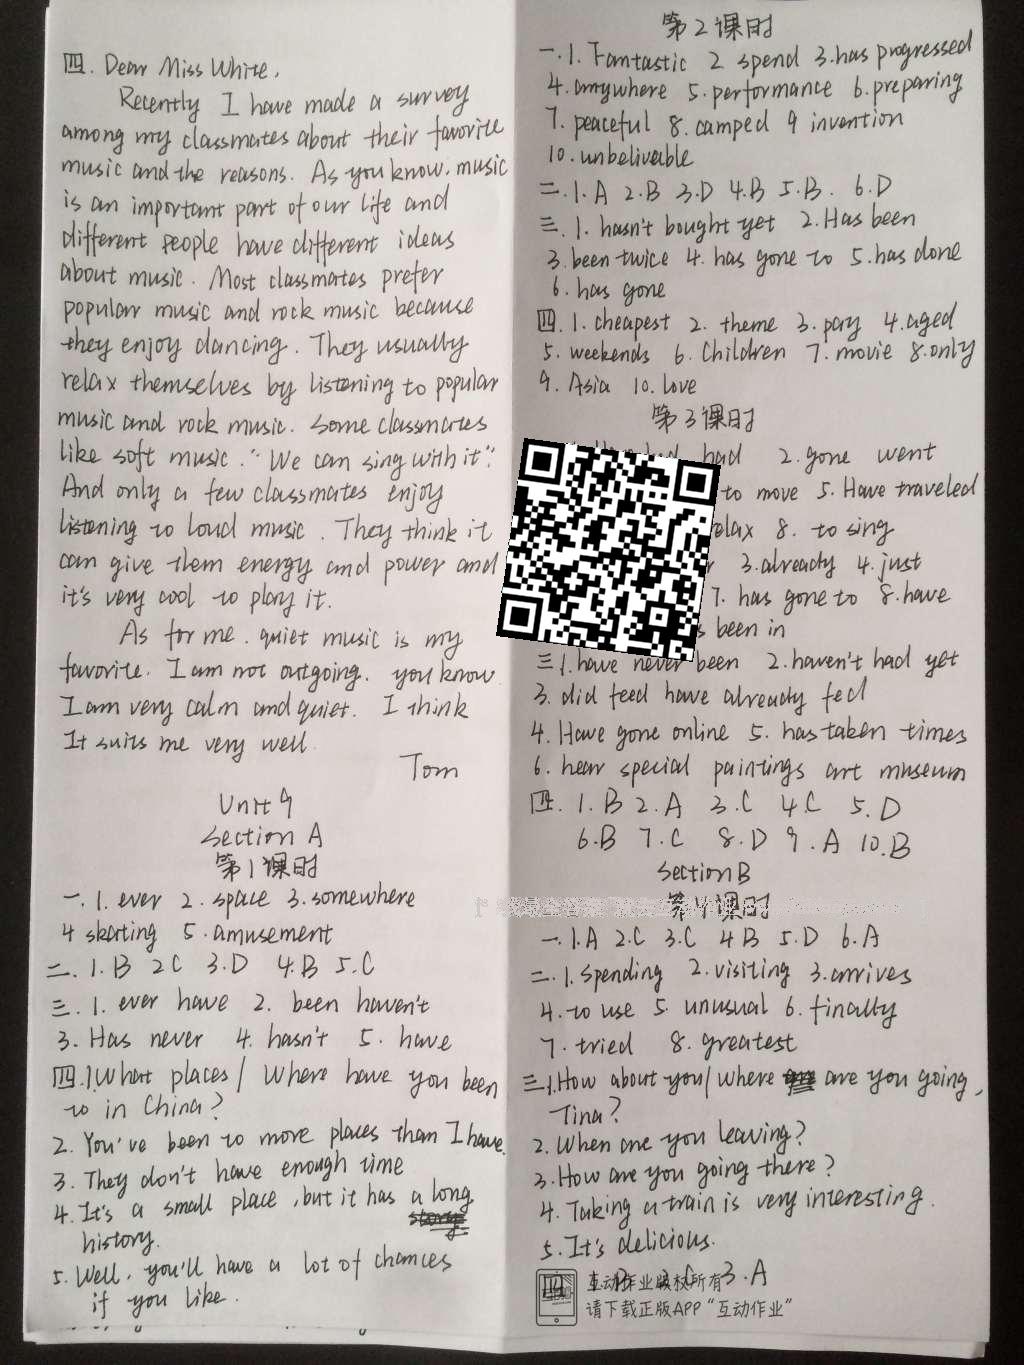 四. Dear Miss White,
Recently I have made a survey
among my classmates about their favorite
music and the reasons. As you know, music
is an important part of our life and
different people have different ideas
about music. Most classmates prefer
popular music and rock music because
they enjoy dancing. They usually
relax themselves by listening to popular
music and rock music. Some classmates
like soft music. "We can sing with it".
And only a few classmates enjoy
listening to loud music. They think it
can give them energy and power and
it's very cool to play it.
As for me, quiet music is my
favorite. I am not outgoing. you know
I am very calm and quiet. I think
It suits me very well.
Tom
Unit 9
Section A
第1课时
一. 1. ever 2. space 3. somewhere
4 skating 5. amusement
二. 1. B 2 C 3. D 4. B 5. C
三. 1. ever have 2. been haven't
3. Has never 4. hasn't 5. have
四. 1. What places / Where have you been
to in China?
2. You've been to more places than I have.
3. They don't have enough time
4. It's a small place, but it has a long
history.
5. Well, you'll have a lot of chances
if you like.
第2课时
一. 1. Fantastic 2 spend 3. has progressed
4. anywhere 5. performance 6. preparing
7. peaceful 8. camped 9 invention
10. unbelivable
二. 1. A 2. B 3. D 4. B 5. B. 6. D
三. 1. hasn't bought yet 2. Has been
3. been twice 4. has gone to 5. has done
6. has gone
四. 1. cheapest 2. theme 3. pay 4. aged
5. weekends 6. Children 7. movie 8. only
9. Asia 10. love
第3课时
had 2. gone went
to move 5. Have traveled
8. to sing
3. already 4. just
7. has gone to 8. have
been in
三 1. have never been 2. haven't had yet
3. did feed have already fed
4. Have gone online 5. has taken times
6. hear special paintings art museum
四. 1. B 2. A 3. C 4. C 5. D
6. B 7. C 8. D 9. A 10. B
Section B
第4课时
一. 1. A 2. C 3. C 4 B 5. D 6. A
二. 1. spending 2. visiting 3. arrives
4. to use 5. unusual 6. finally
7. tried 8. greatest
三 1. How about you / where are you going,
Tina?
2. When are you leaving?
3. How are you going there?
4. Taking a train is very interesting.
5. It's delicious.
四 3. A
互动作业版权所有
请下载正版APP“互动作业”